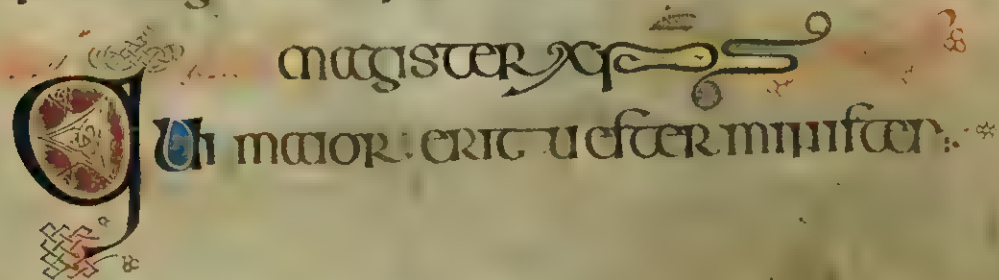 magister xps
Qui maior erit uester minister